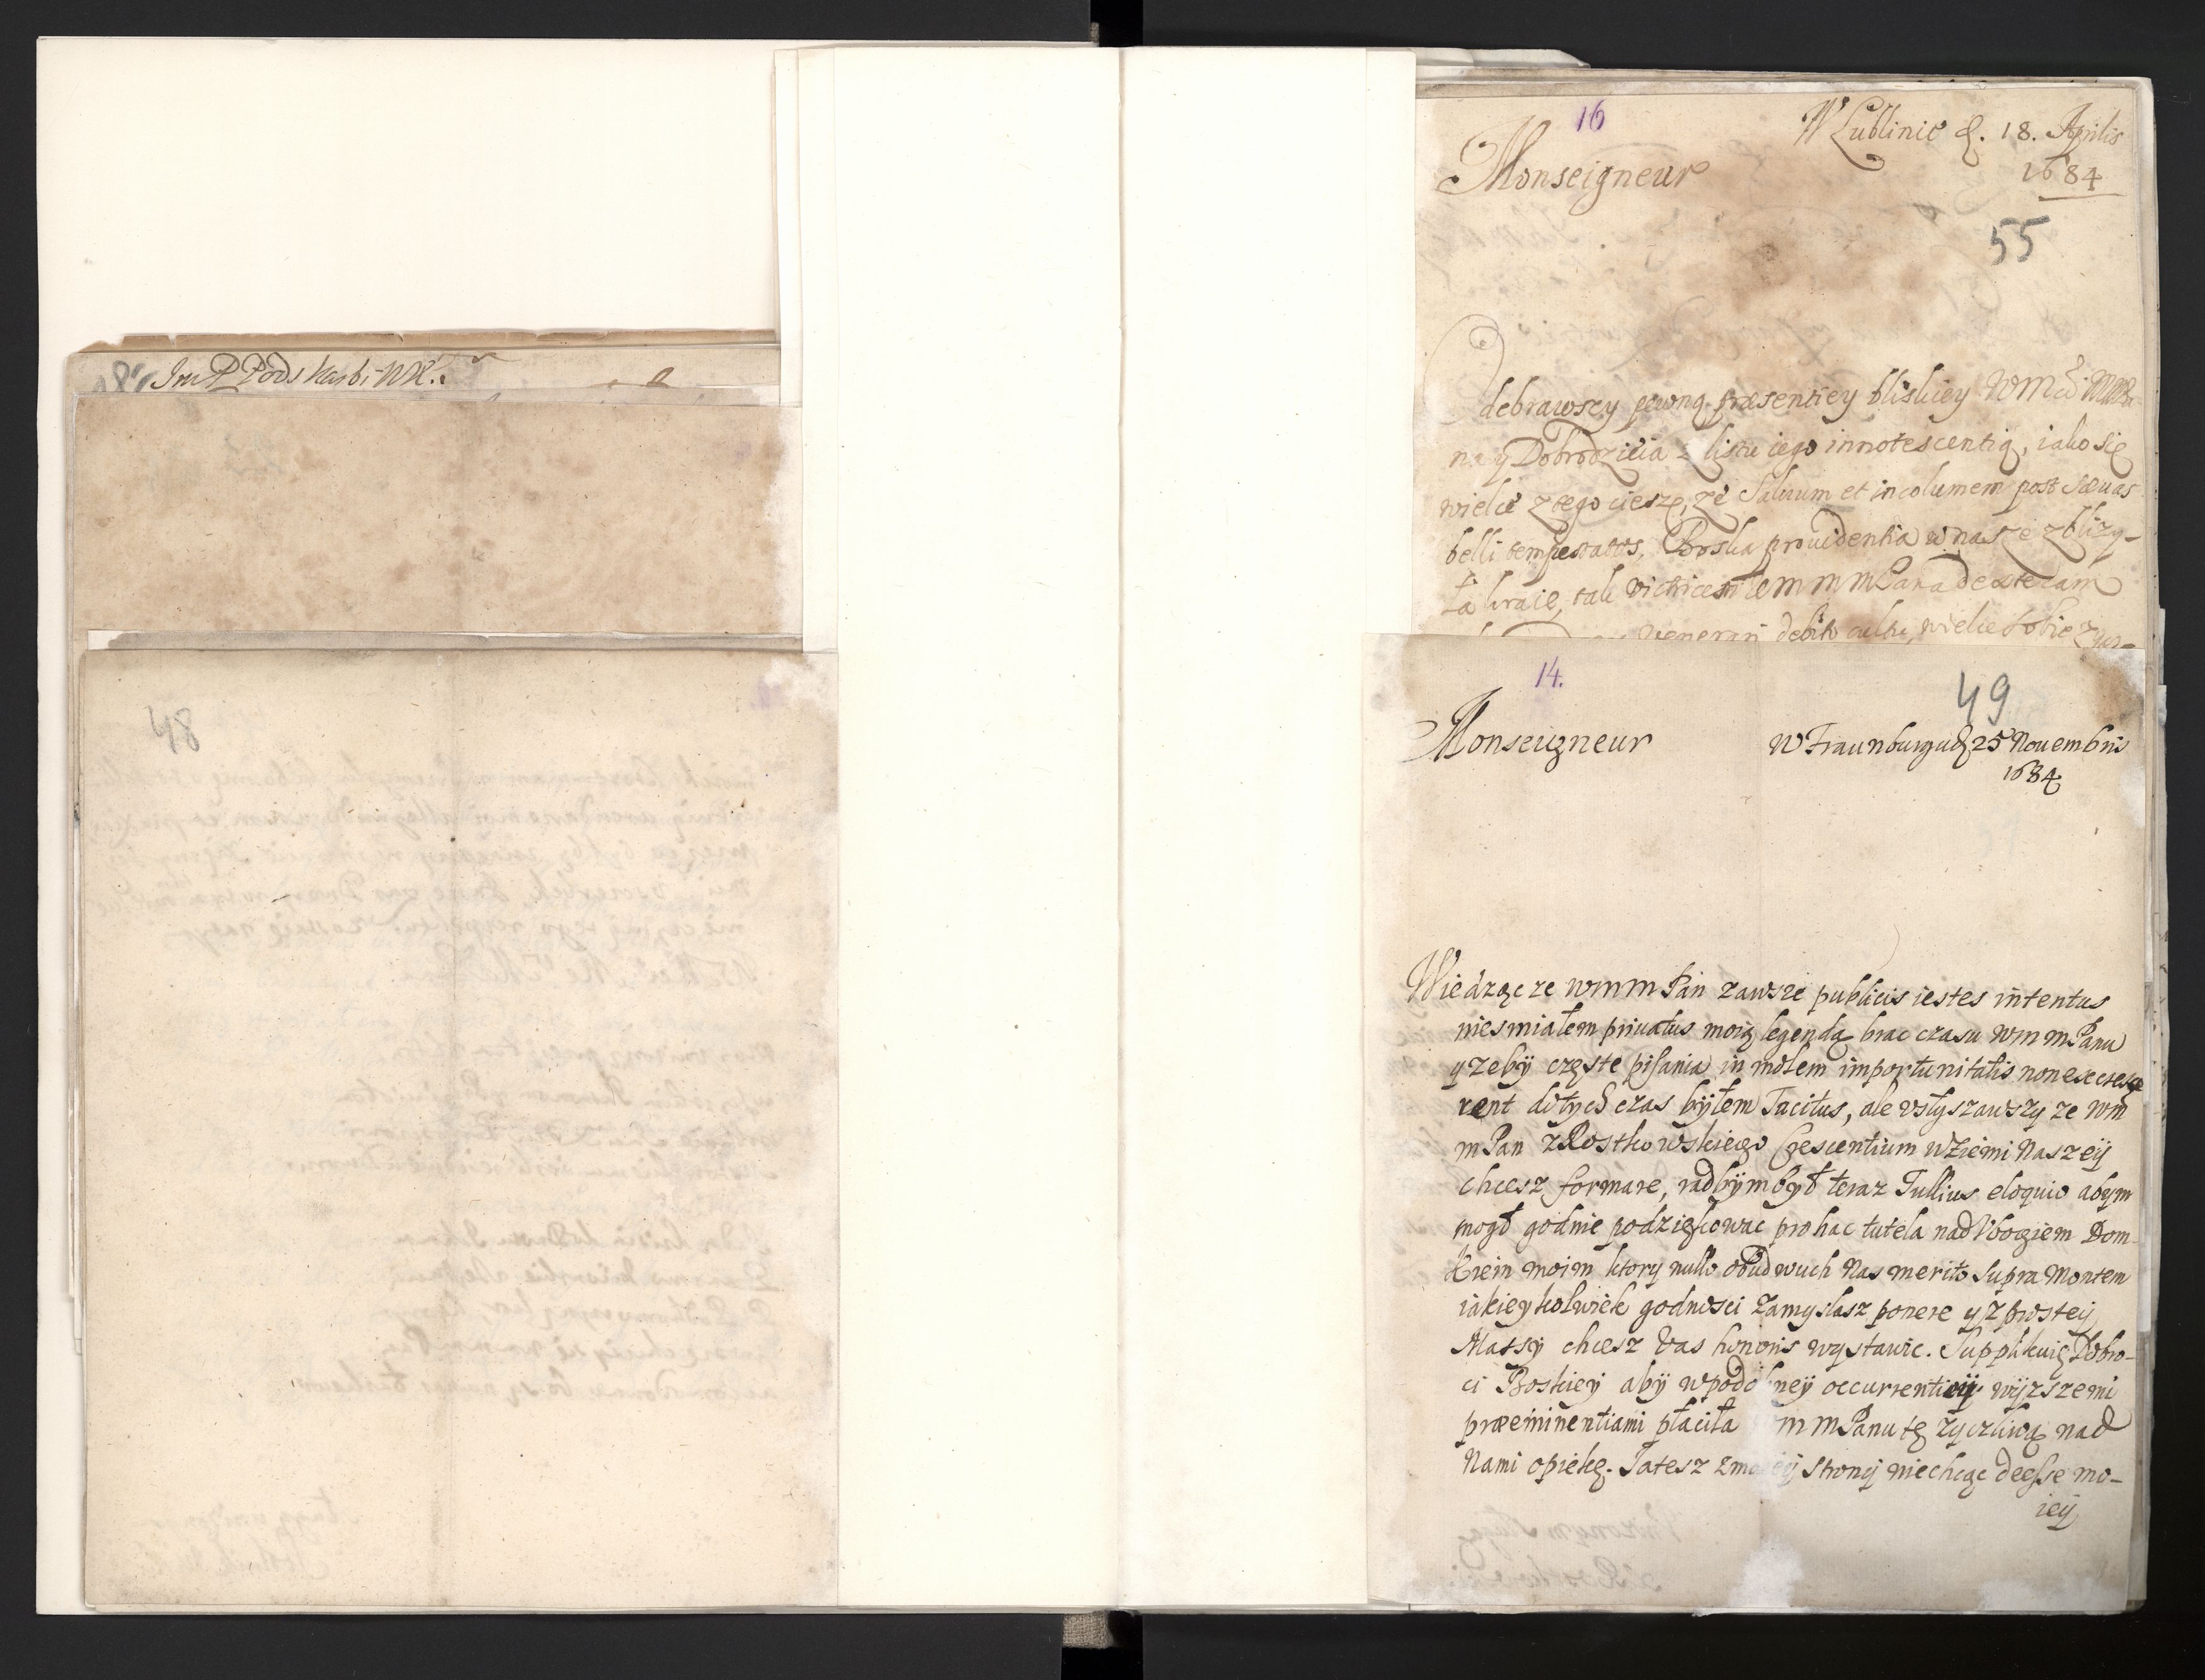 Im P Pods karbi WK.
48
16
W Lublinie d. 18. Aprilis
1684
Monseigneur
55
Odebrawszy pewną præsentiey bliskiey WMci
na y Dobrodzieia z listu iego innotescentią, iako się
wielce z tego cieszę, ze Saluum et incolumem post sæuas
belli tempestates, Boska prouidentia w nasze zblizy-
ła kraie, tak victricem W M M Pana dexteram
venerari debito cultu, wielce sobie zycz-
14.
49
Monseigneur
w Fraunburgu d 25 Nouembris
1684
Wiedząc ze wmm Pan zawsze publicis iestes intentus
niesmiałem priuatus moią legendą brac czasu wm mPanu
y zebÿ częste pisania in molem importunitatis non excresce
rent do tych czas bÿłem Tacitus, ale vsłyszawszy ze wm
mPan z Rostkowskiego Crescentium w Ziemi Naszeÿ
chcesz formare, radbÿm był teraz Tullius eloquio abym
mogł godnie podziękowac pro hac tutela nad Vbogiem Dom-
kiem moim ktory nullo obudwuch Nas merito Supra Montem
iakieykolwiek godnosci zamyslasz ponere y z prosteÿ
Massÿ chcesz Vas honoris wystawic. Supplikuię Dobro-
ci Boskieÿ abÿ w podobneÿ occurrentieÿ wÿzszemi
præeminentiami płaciła mmPanu tę zyczliwą nad
Nami opiekę. Ja tesz z moieÿ stronÿ niechcąc deesse mo-
ieÿ